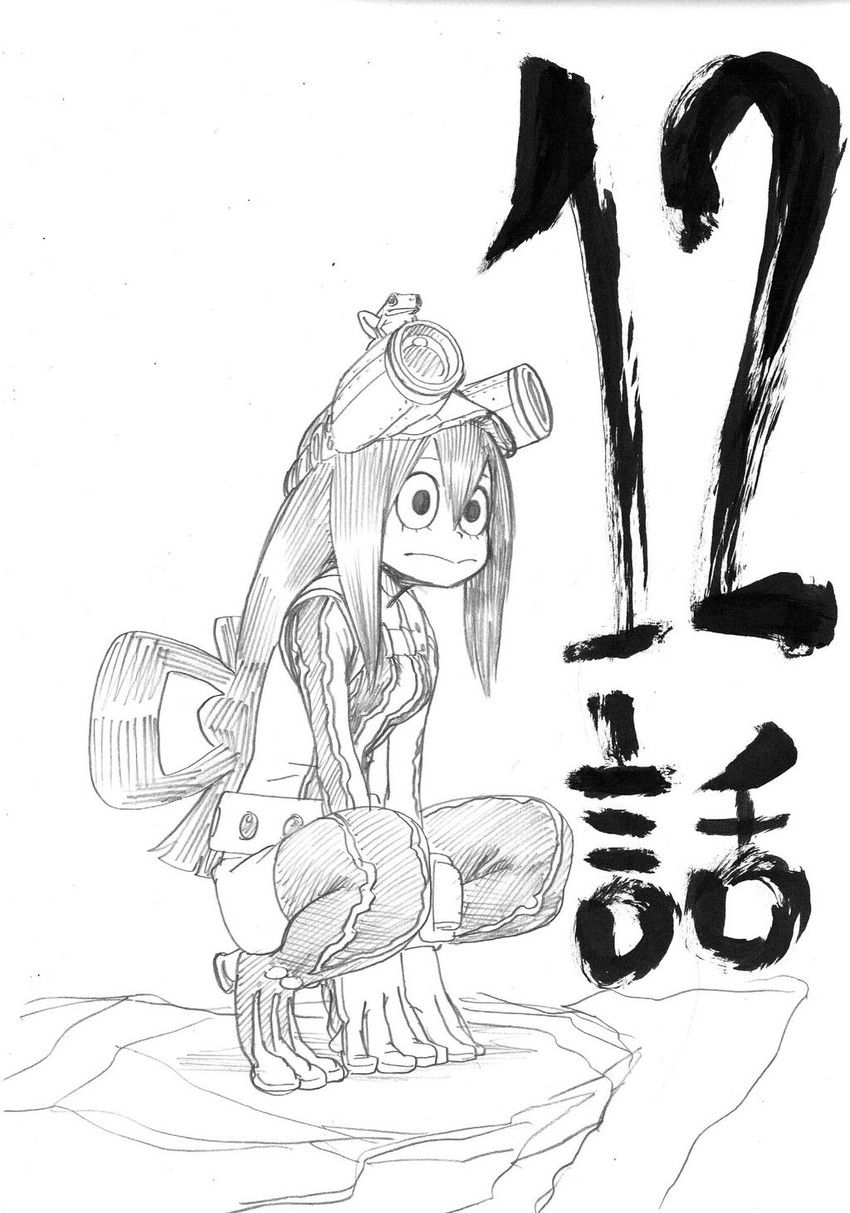 12話